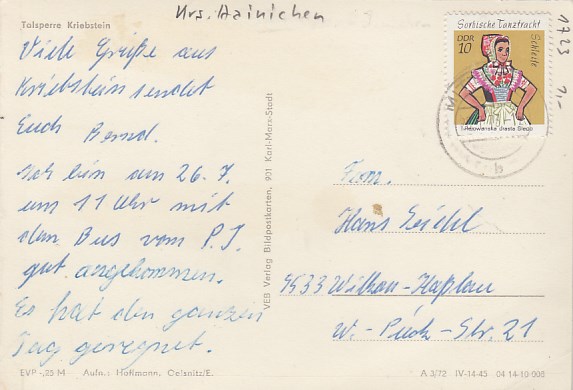 Talsperre Kriebstein
Krs. Hainichen
Viele Grüße aus
Kriebstein sendet
Euch Bernd.
Ich bin am 26. 7.
um 11 Uhr mit
dem Bus vom P. J.
gut angekommen.
Es hat den ganzen
Tag geregnet.
EVP -,25 M Aufn.: Hoffmann, Oelsnitz/E.
VEB Verlag Bildpostkarten, 901 Karl-Marx-Stadt
Sorbische Tanztracht
DDR
10
Schleife
1723
1,-
Fam.
Hans Seidel
9533 Wilkau-Haßlau
W.-Pieck-Str. 21
A 3/72 IV-14-45 04 14-10-006